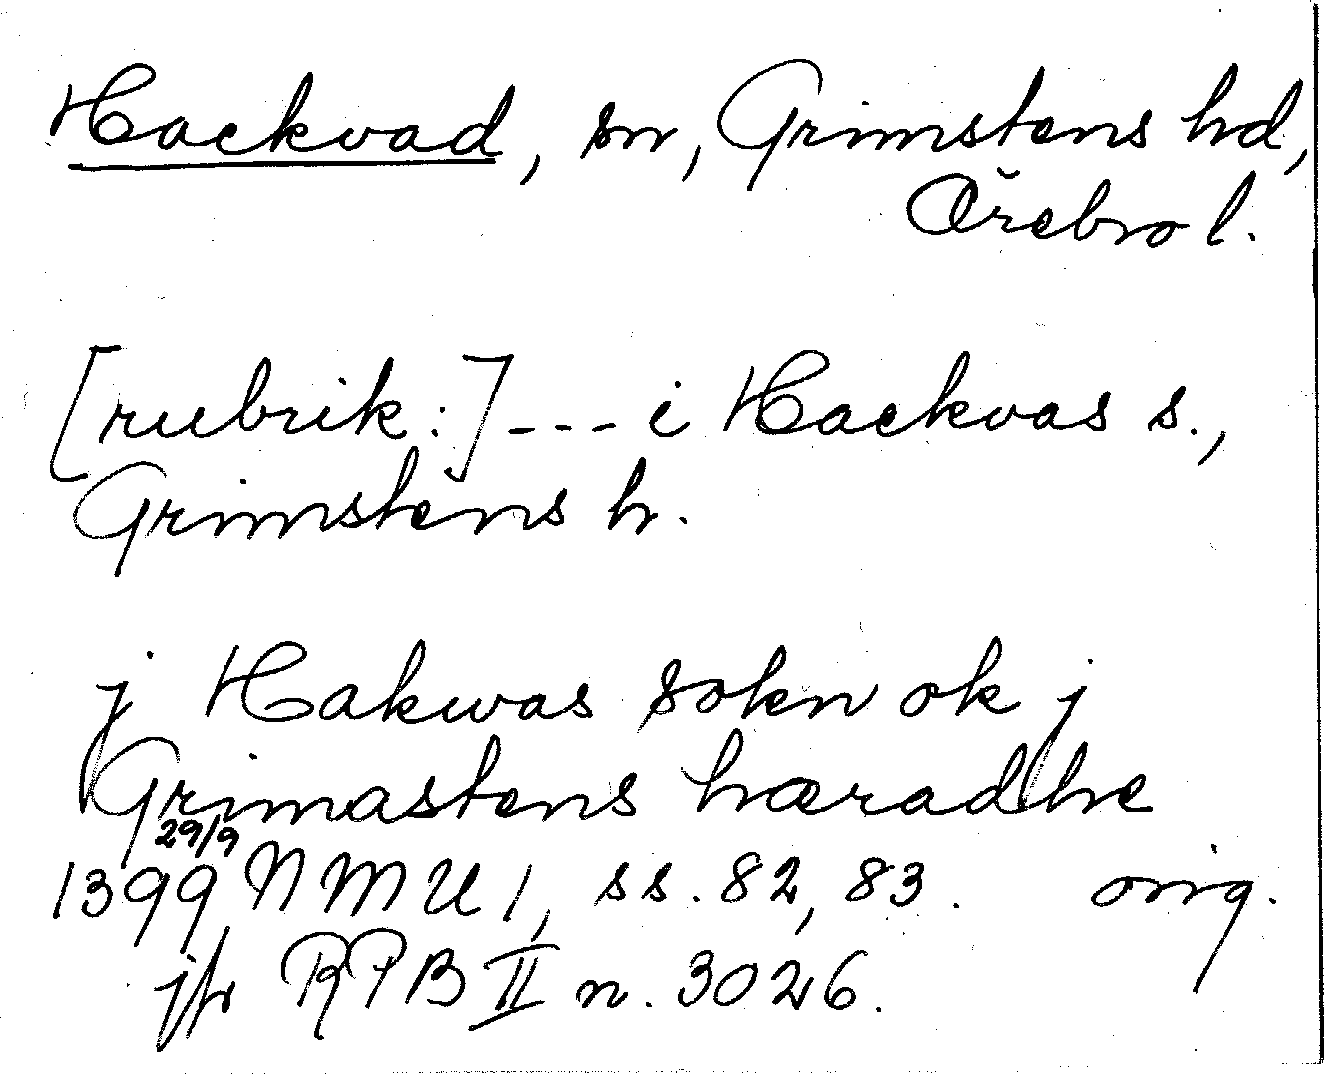 Hackvad, sn, Grimstens hd,
Örebro l.
[rubrik:] --- i Hackvas s.,
Grimstens h.
j Hakwas sokn ok j
Grimastens hæradhe
29/9
1399 NMU 1, ss. 82, 83. orig.
jfr RPB II n. 3026.